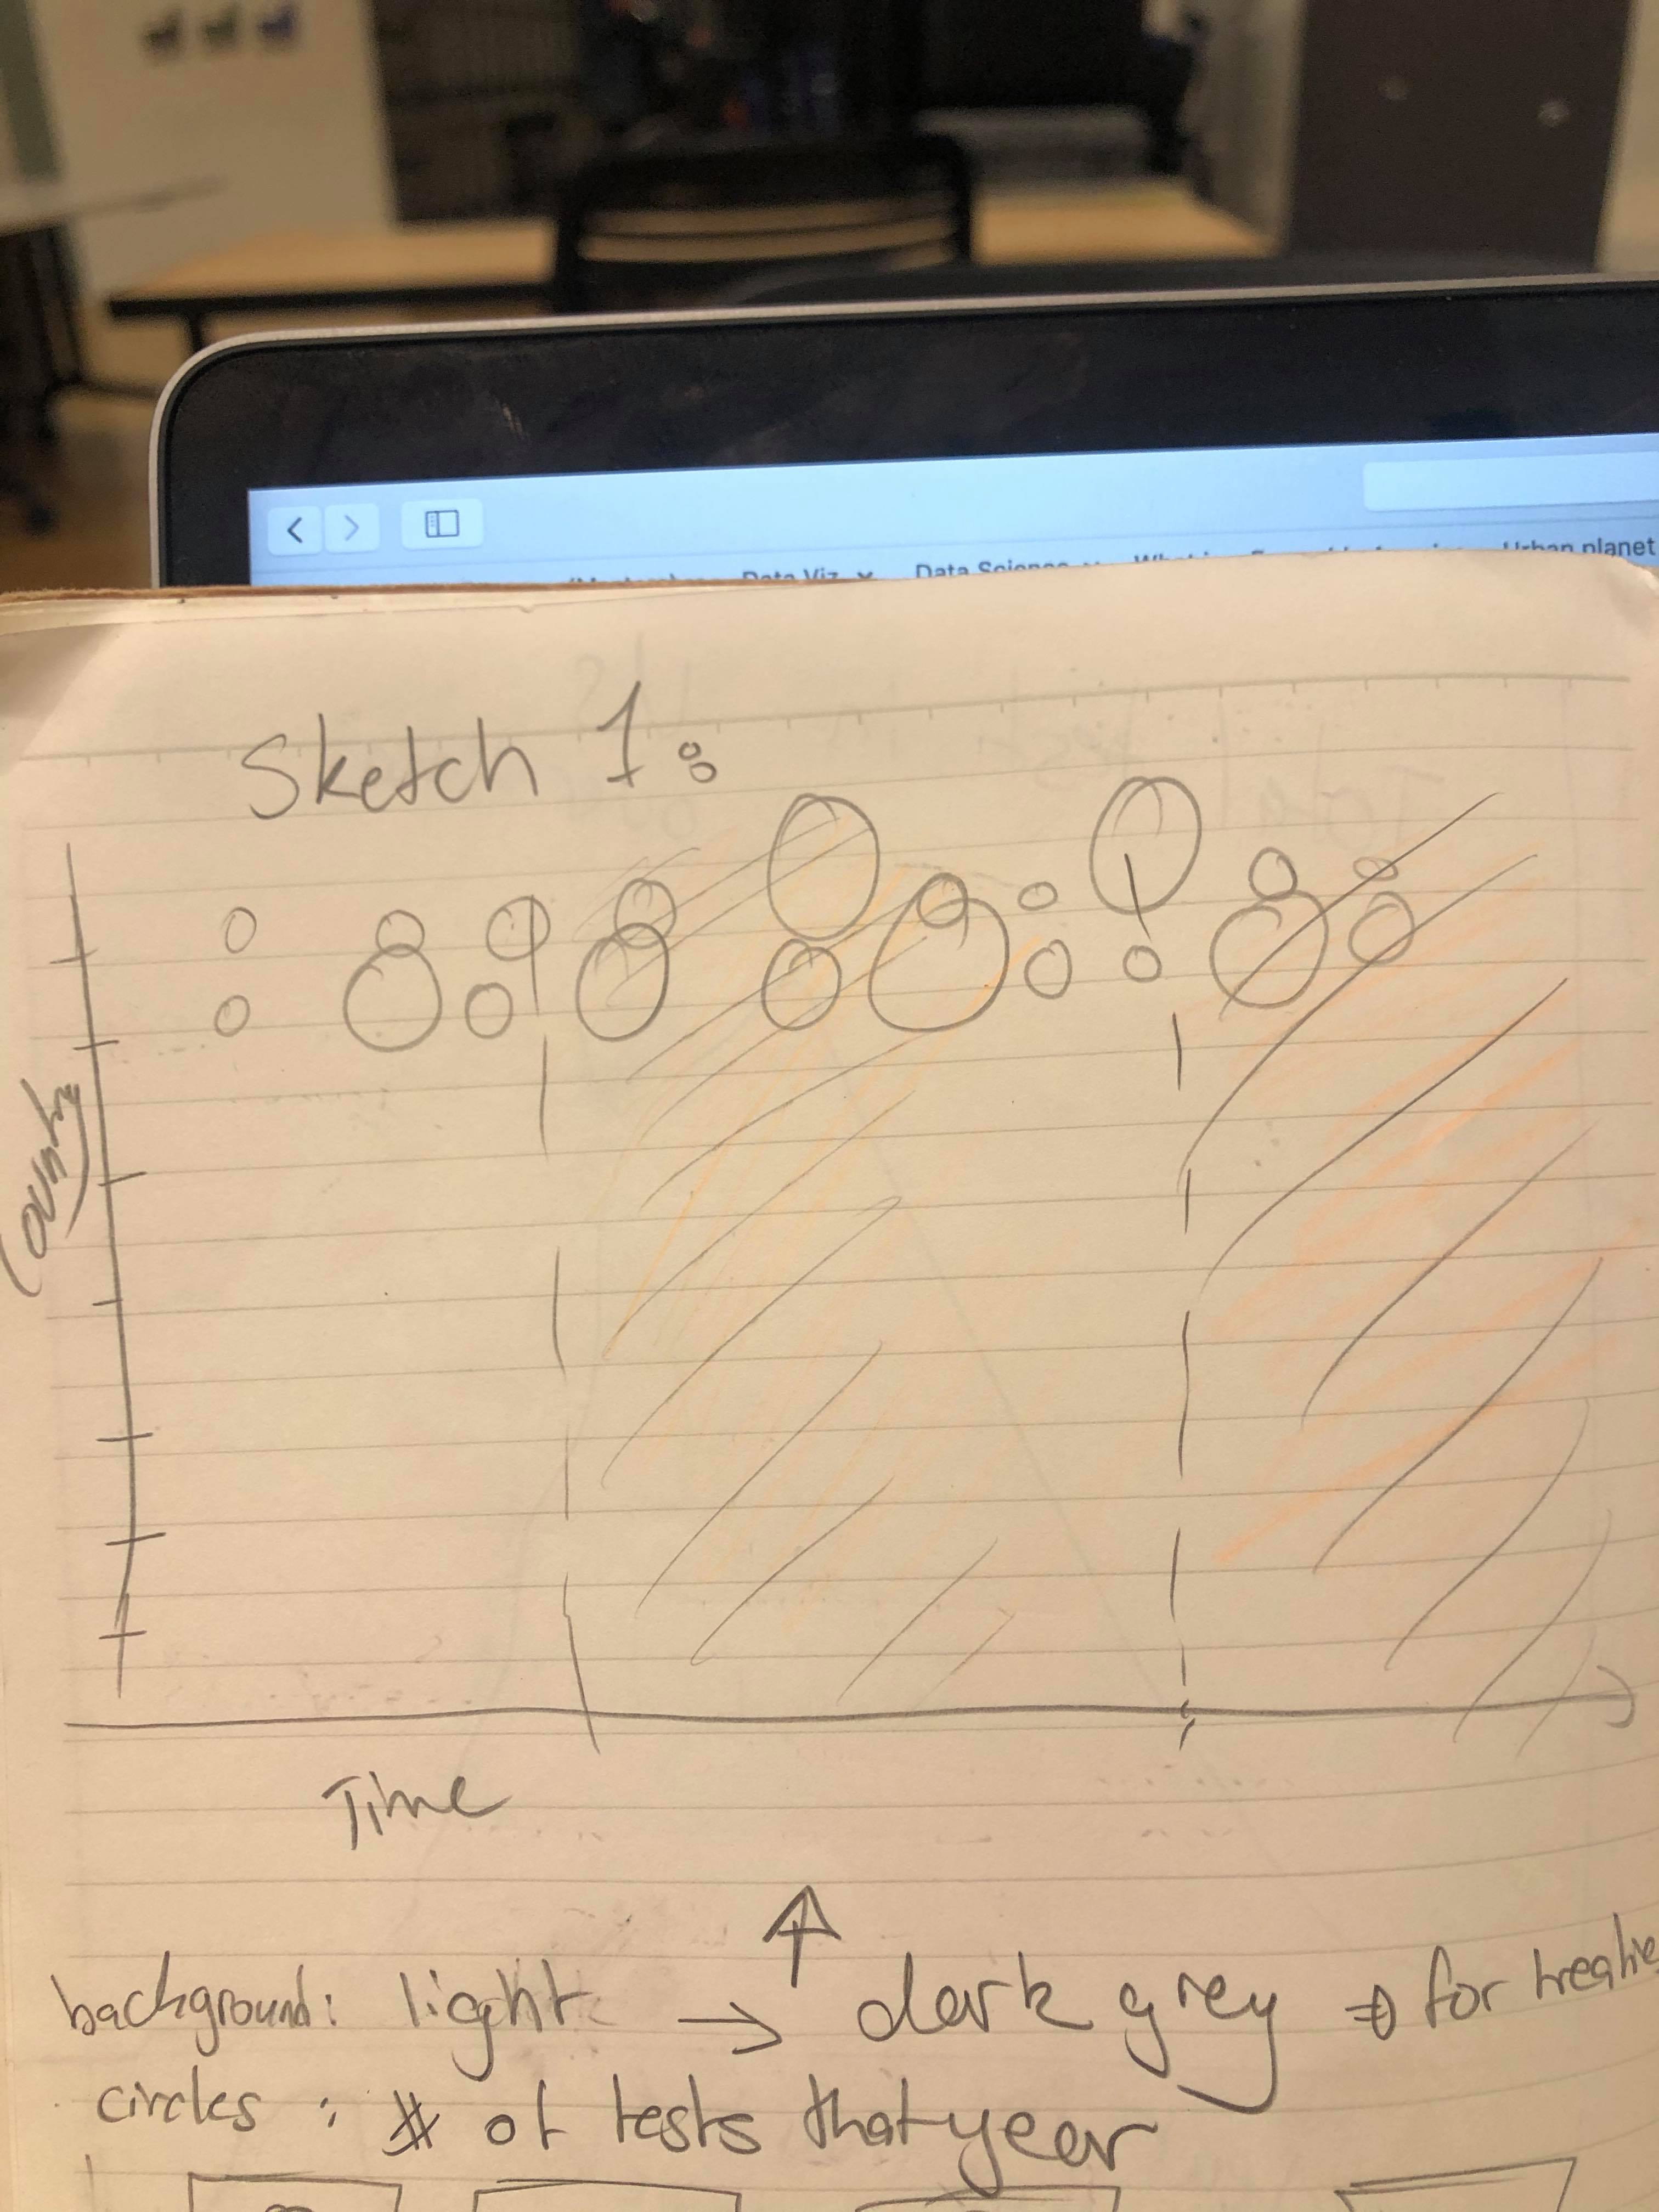 Data Viz
Data Science
Urban planet
Sketch 1:
Country
Time
background: light → dark grey ⇒ for treaties
circles : # of tests that year